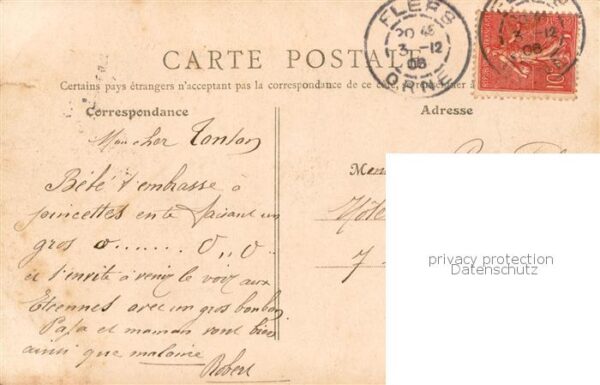 CARTE POSTALE
Certains pays étrangers n'acceptent pas la correspondance de ce côté,
Correspondance
Adresse
FLERS
20 45
3 -12
06
ORNE
10
Mon cher Tonton
Bébé t'embrasse à
pincettes en te faisant un
gros o....... O,,O
et t'invite à venir le voir aux
Etrennes avec un gros bonbon
Papa et maman vont bien
ainsi que
Robert
Hôte
7
privacy protection
Datenschutz